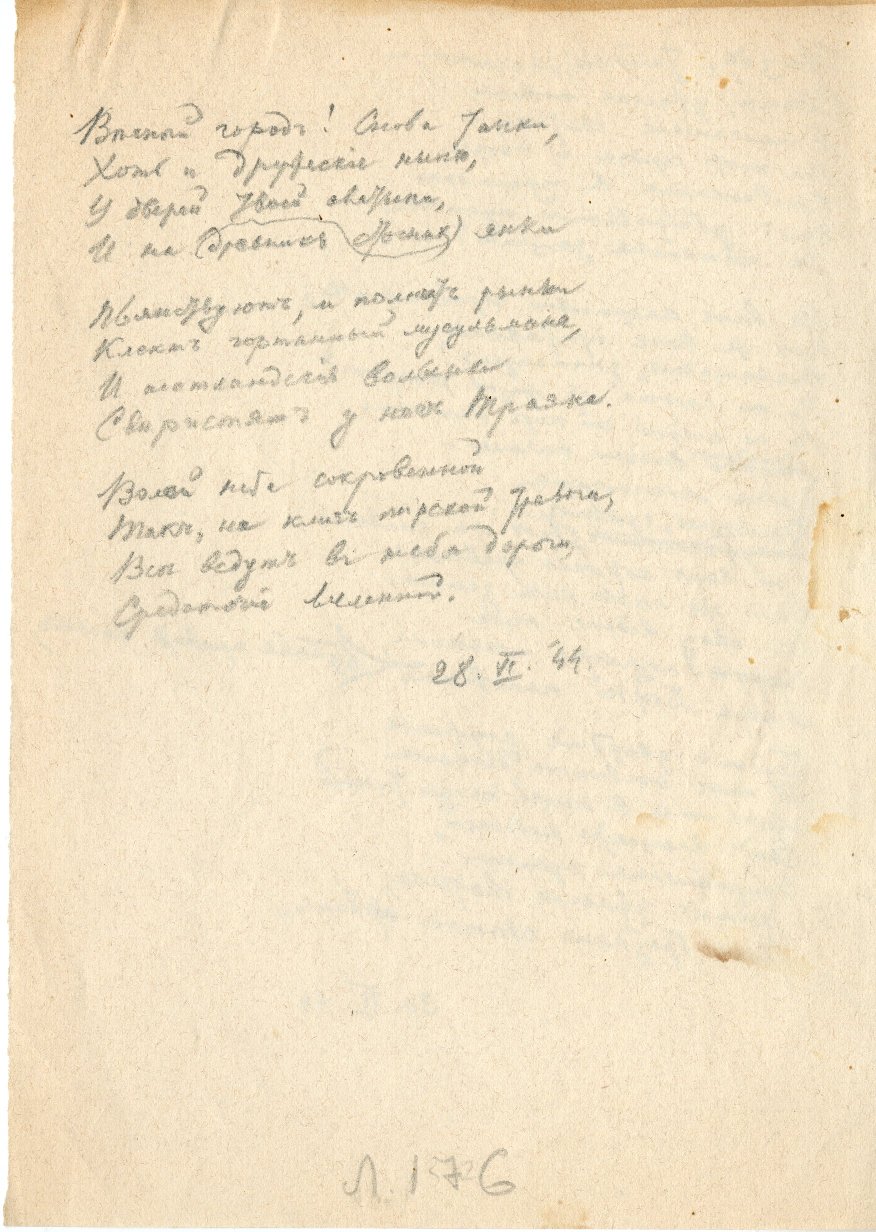 Вѣчный городъ! Снова танки,
Хоть и дружескіе нынѣ,
У дверей твоей святыни,
И на древнихъ стогнахъ янки
Пьянствуютъ, и полнитъ рынки
Клектъ гортанный мусульмана,
И шотландскія волынки
Свиристятъ у ногъ Траяна.
Волей неба сокровенной
Такъ, на кличъ мірской тревоги,
Всѣ ведутъ въ тебя дороги,
Средоточіе вселенной.
28. VI. '44.
Л.